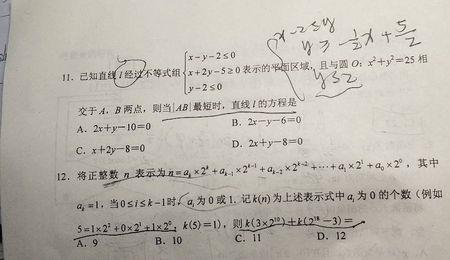 x-2≤y
y≥-1/2x+5/2
y≤2
11. 已知直线 l 经过不等式组 { x-y-2≤0
x+2y-5≥0
y-2≤0 表示的平面区域,且与圆 O: x²+y²=25 相
交于 A, B 两点,则当|AB|最短时,直线 l 的方程是
A. 2x+y-10=0 B. 2x-y-6=0
C. x+2y-8=0 D. 2x+y-8=0
12. 将正整数 n 表示为 n=aₖ×2ᵏ+aₖ₋₁×2ᵏ⁻¹+aₖ₋₂×2ᵏ⁻²+⋯+a₁×2¹+a₀×2⁰, 其中
aₖ=1, 当 0≤i≤k-1时, aᵢ为 0 或 1. 记 k(n)为上述表示式中 aᵢ 为 0 的个数 (例如
5=1×2²+0×2¹+1×2⁰, k(5)=1), 则 k(3×2¹⁰)+k(2¹⁸-3)=
A. 9 B. 10 C. 11 D. 12